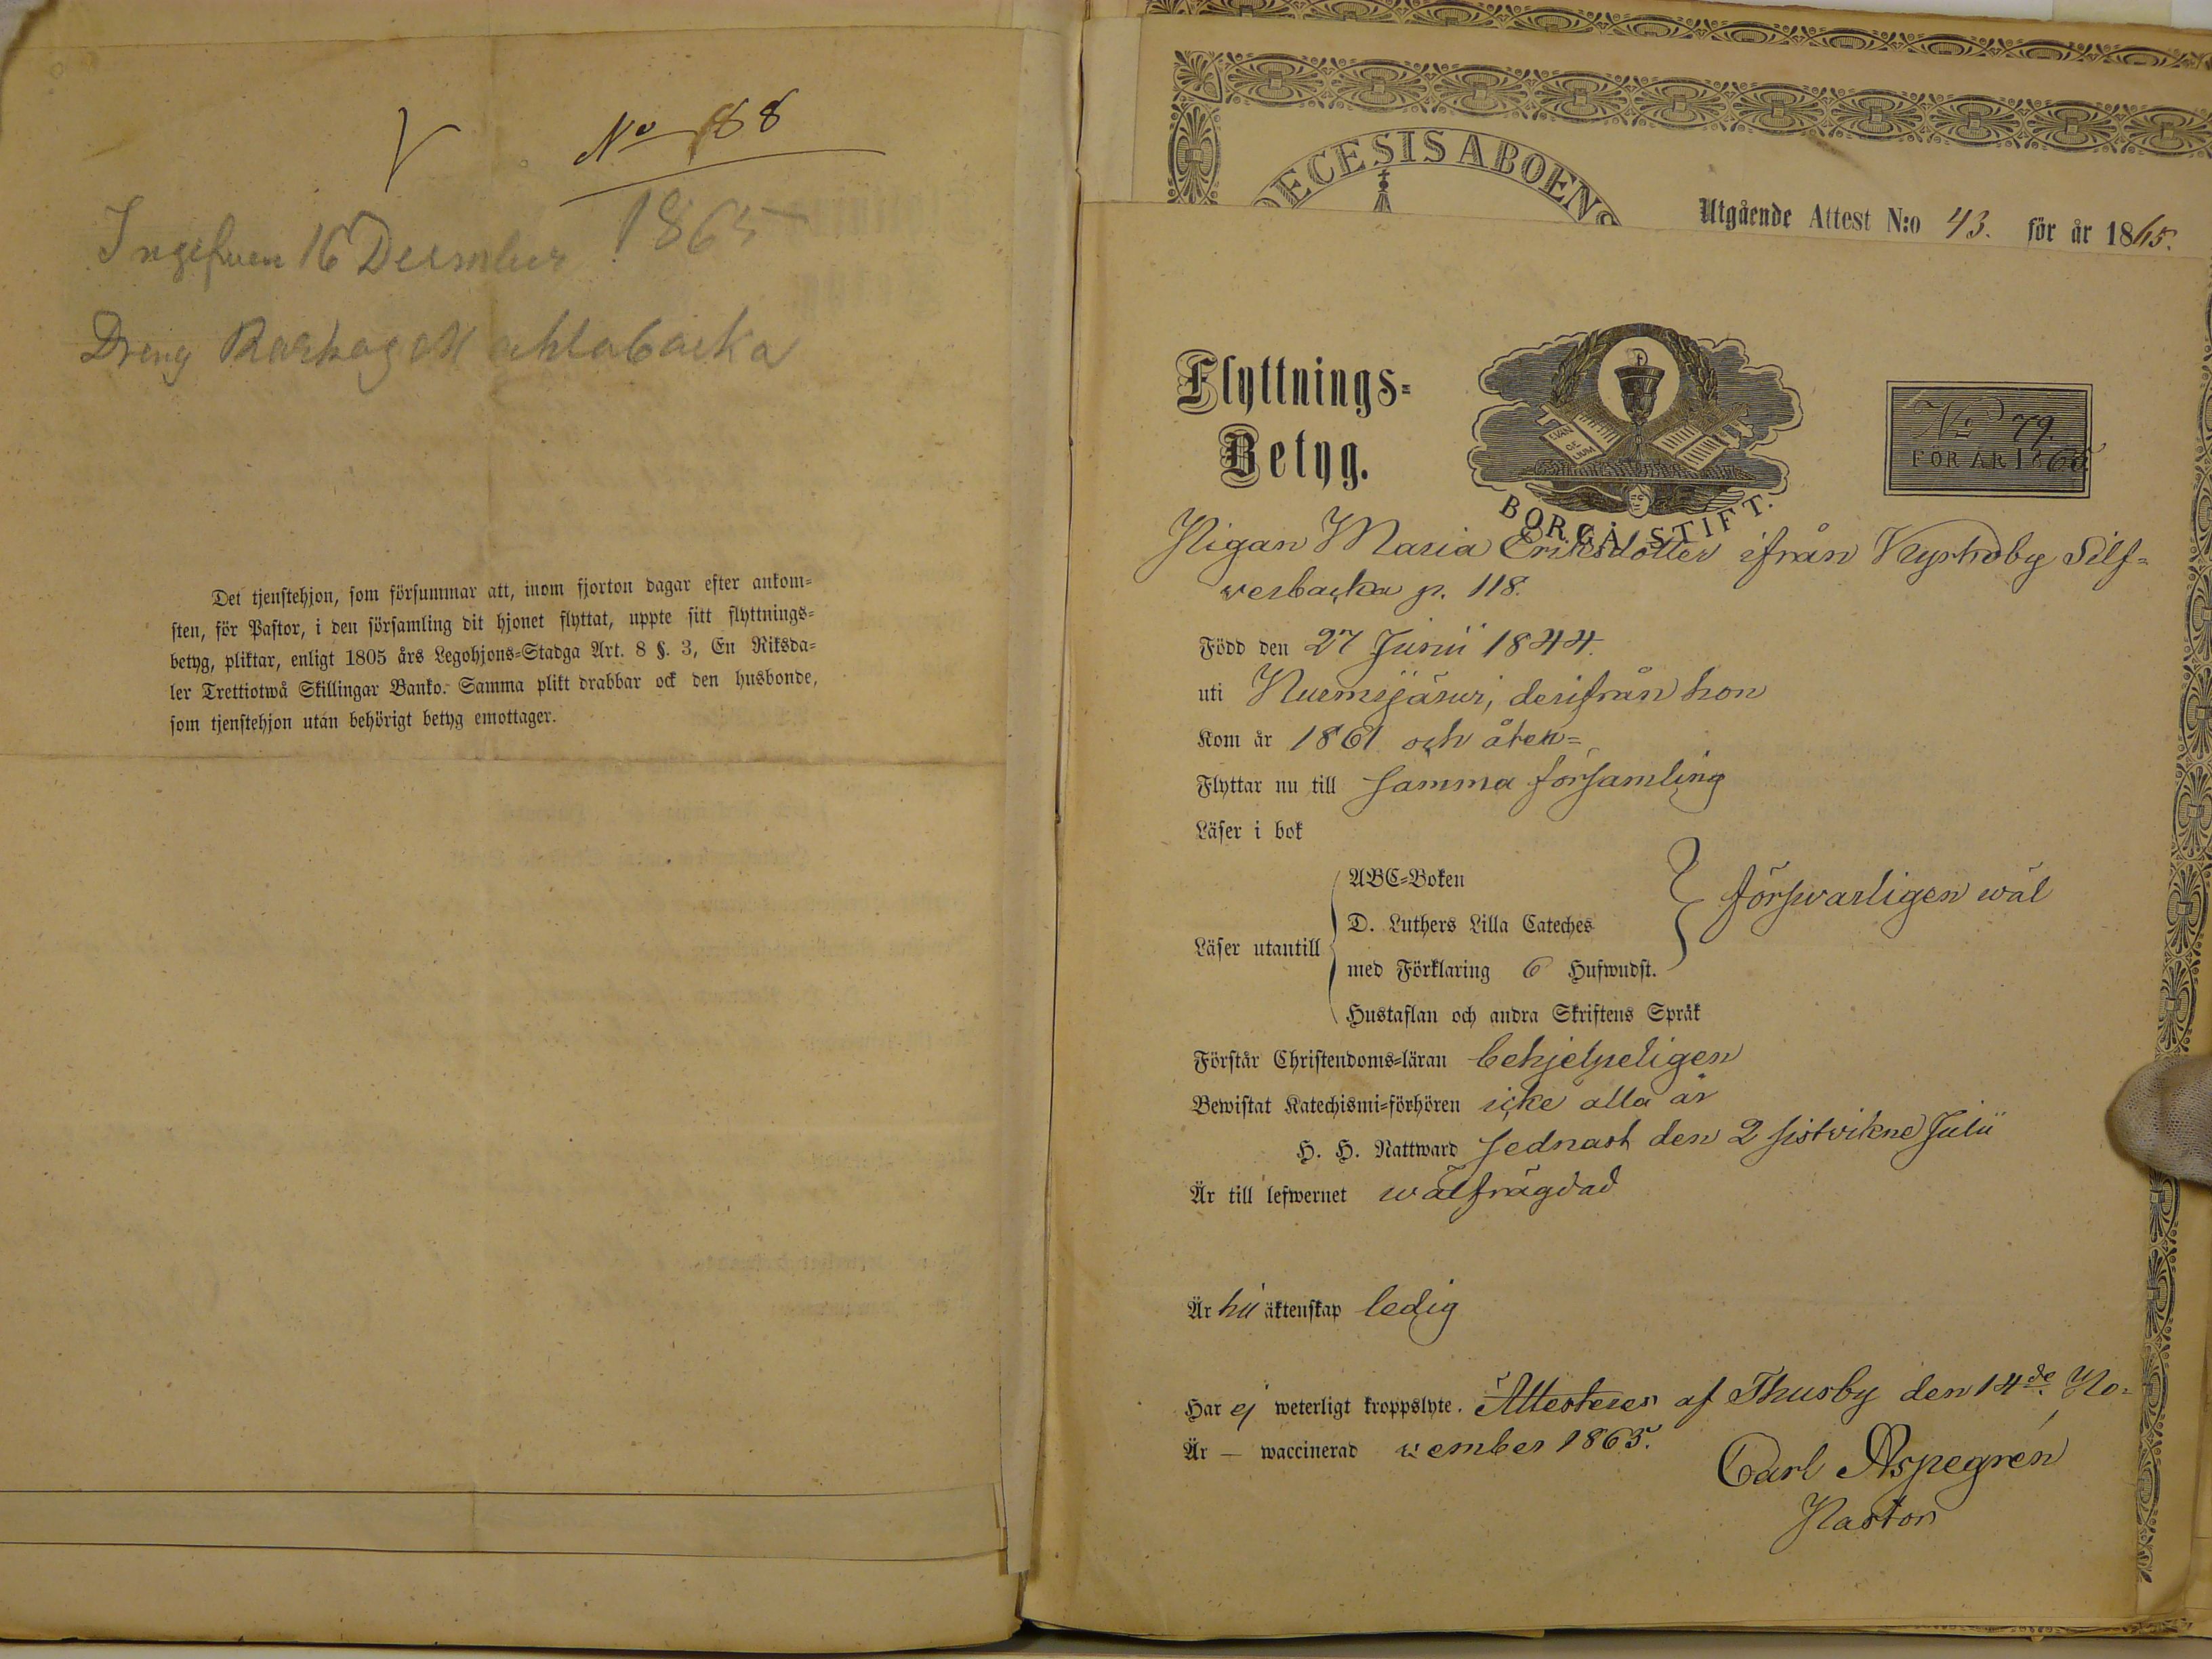 No 188
Ingifven 16 December 1865
Dreng
Det tjenstehjon, som försummar att, inom fjorton dagar efter ankom=
sten, för Pastor, i den församling dit hjonet flyttat, uppte sitt flyttnings=
betyg, pliktar, enligt 1805 års Legohjons=Stadga Art. 8 §. 3, En Riksda=
ler Trettiotwå Skillingar Banko. Samma plikt drabbar ock den husbonde,
som tjenstehjon utan behörigt betyg emottager.
DECESIS ABOENS
Utgående Attest N:o 43. för år 1865.
Flyttnings=
Betyg.
EVAN
GE
LIUM
BORGÅ STIFT.
No 79.
FÖR ÅR 1865
Pigan Maria Eriksdotter ifrån Kyrkoby Silf=
werbacka p. 118.
Född den 27 Junii 1844.
uti Nuemijärwi, derifrån hon
Kom år 1861 och åter=
Flyttar nu till samma församling
Läser i bok
Läser utantill
ABC=Boken
D. Luthers Lilla Cateches
med Förklaring 6 Hufwudst.
Hustaflan och andra Skriftens Språk
försvarligen wäl
Förstår Christendoms=läran behjelpeligen
Bewistat Katechismi=förhören icke alla år
H. H. Nattward sednast den 2 sistvikne Julii
Är till lefwernet wälfrägdad
Är till äktenskap ledig
Har ej weterligt kroppslyte. Attesterer af Thusby den 14de No=
Är — waccinerad vember 1865.
Carl Aspegrén
Pastor